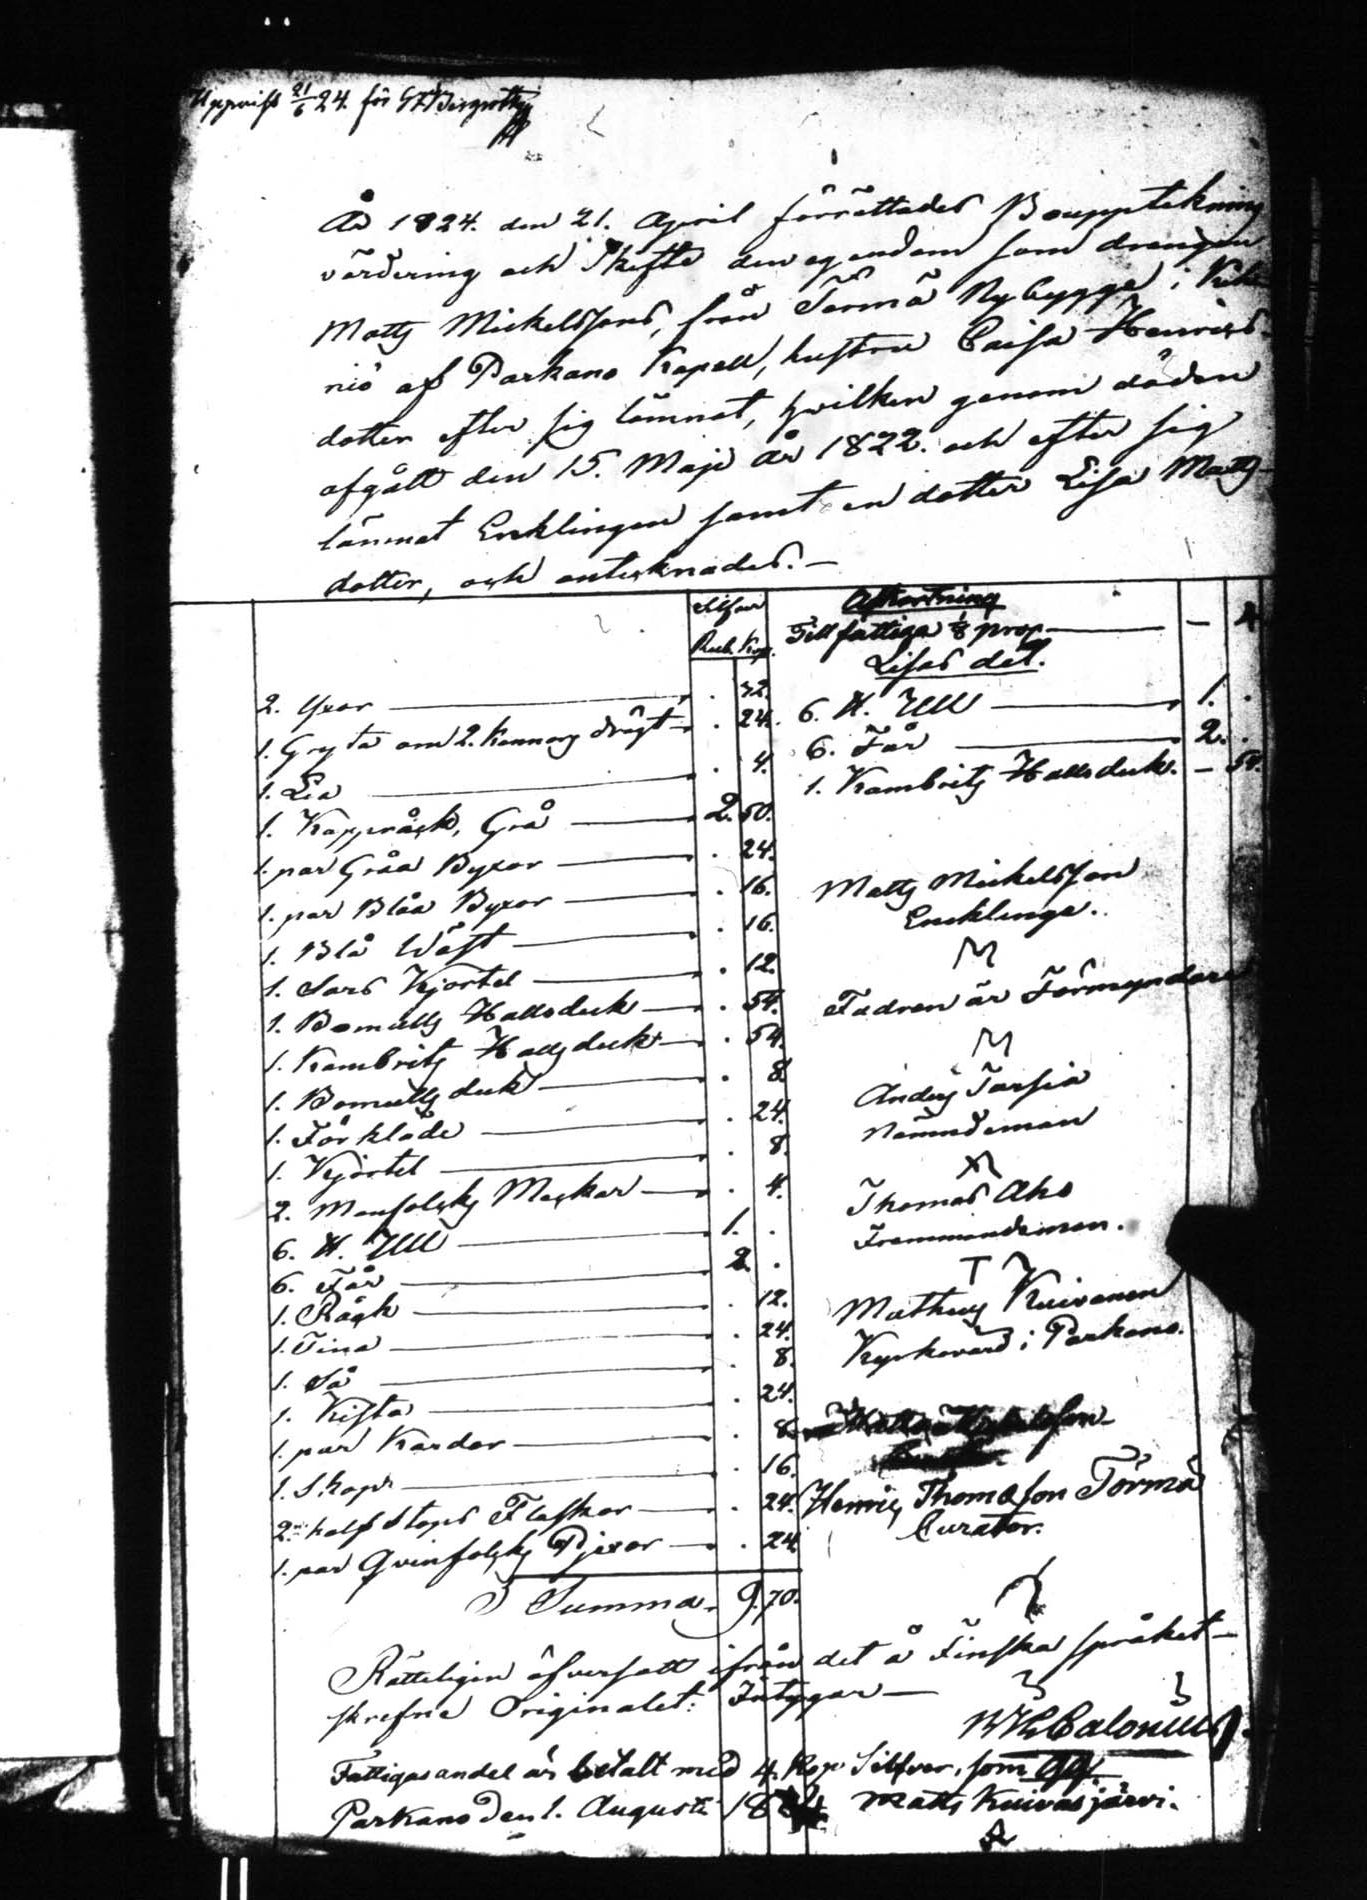 Uppvist 21/6 24. för
År 1824. den 21. April förrättades Bouppteckning
värdering och Skifte den egendom som drengen
Matts Mickelssons, från Törmä Nybygge i Kih-
niö af Parkano Kapell, hustru Caisa Henrics-
dotter efter sig lämnat, hvilken genom döden
afgått den 15. Maji År 1822. och efter sig
lämnat Enklingen samt en dotter Lisa Matts-
dotter, och antecknades. —
Silfver
Rub. Kop.
2. Yxor . 32.
1. Gryta om 2. Kannors drägt . 24.
1. Lia . 4.
1. Kappråck, Grå 2. 50.
1. par Gråa Byxor . 24.
1. par Blåa Byxor . 16.
1. Blå Wäst . 16.
1. Sars Kjortel . 12.
1. Bomulls Halsduk . 54.
1. Kambrits Halsduk . 54
1. Bomulls duk . 8
1. Förkläde . 24.
1. Kjortel . 8.
2. Manfolks 4.
6. ℔. Ull 1. .
6. Får 2. .
1. Råck . 12.
1. Tina . 24.
1. Så . 8.
1. Kista . 24.
1. par Kardor . 8
1. Skåp . 16.
2. half Stops Flaskor . 24.
1. par Qvinfolks Pjexor . 24
Summa. 9. 70.
Afkortning
Till fattiga 1/8 proc — 4
Lisas del.
6. ℔. Ull 1. .
6. Får 2. .
1. Kambrits Halsduk. — 54.
Matts Mickelsson
Encklinge.
Fadren är Förmyndare
Anders Tarsia
Nämndeman
Thomas Aho
Fremmandeman.
T
Mathus Kuivanen
Kyrkovärd i Parkano.
Henric Thomasson Törmä
Curator.
Rätteligen öfversatt ifrån det å Finska språket
skrefne Originalet: Intygar —
Calonius
Fattigas andel är betalt med 4. Kop Silfver, som
Parkano den 1. Augusti 1824 Matts Kuivasjärvi.